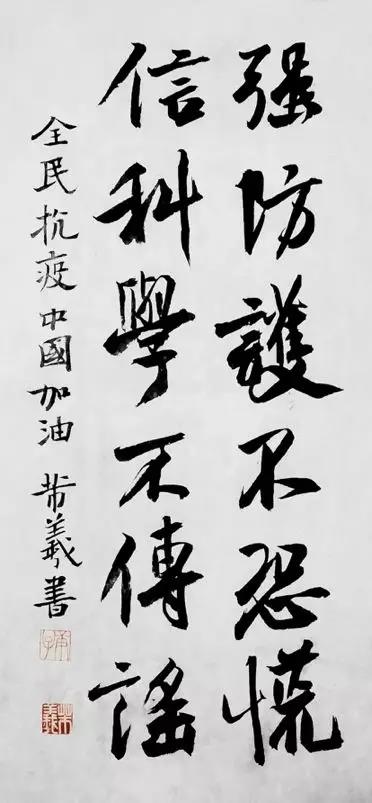 强防護不恐慌
信科學不傳謠
全民抗疫中國加油 芾義書